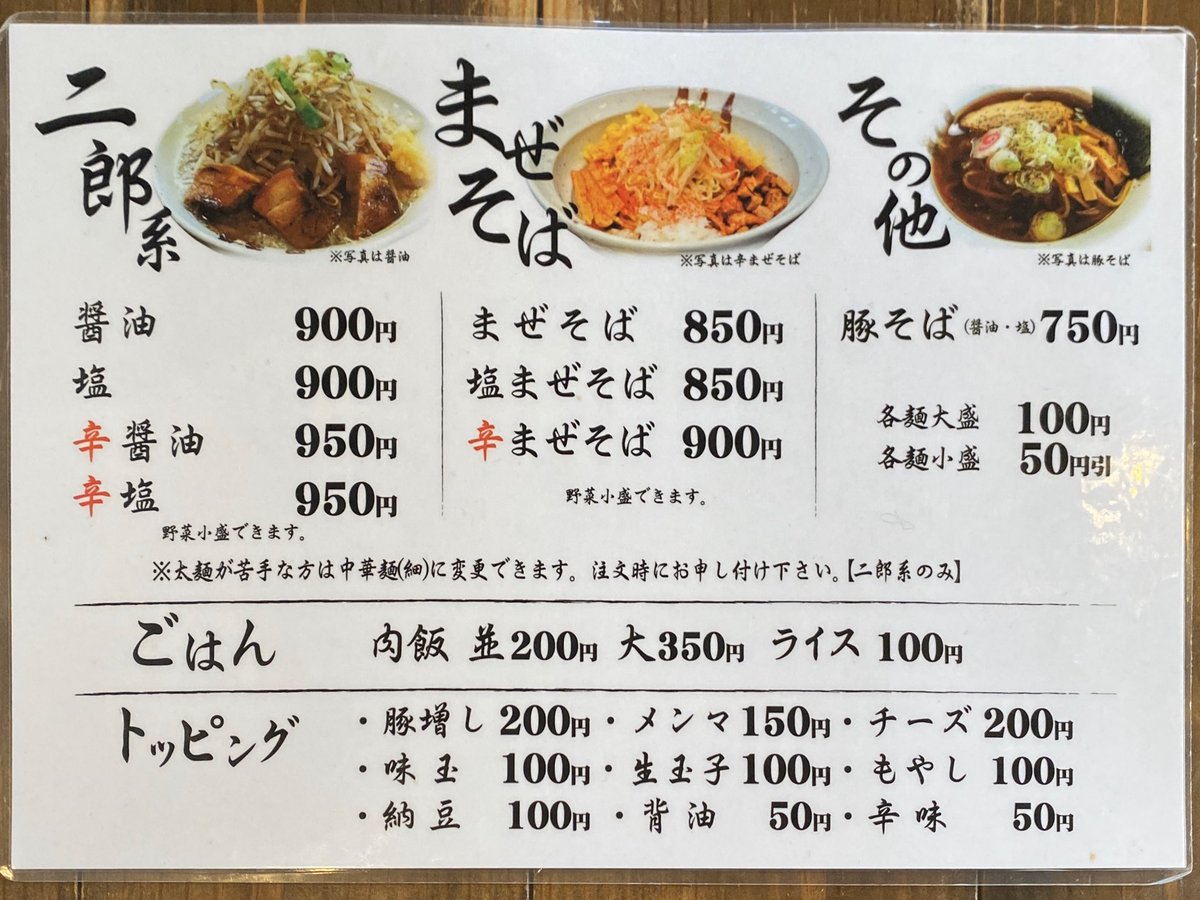 二郎系
※写真は醤油
醤油 900円
塩 900円
辛醤油 950円
辛塩 950円
野菜小盛できます。
まぜそば
※写真は辛まぜそば
まぜそば 850円
塩まぜそば 850円
辛まぜそば 900円
野菜小盛できます。
その他
※写真は豚そば
豚そば(醤油・塩) 750円
各麺大盛 100円
各麺小盛 50円引
※太麺が苦手な方は中華麺(細)に変更できます。注文時にお申し付け下さい。【二郎系のみ】
ごはん 肉飯 並200円 大350円 ライス 100円
トッピング
・豚増し 200円 ・メンマ 150円 ・チーズ 200円
・味玉 100円 ・生玉子 100円 ・もやし 100円
・納豆 100円 ・背油 50円 ・辛味 50円